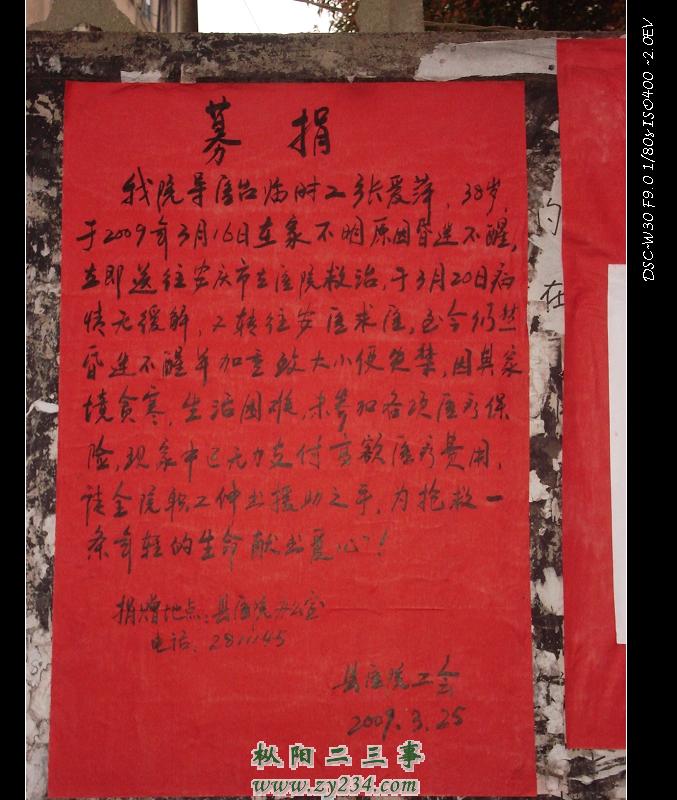 募捐
我院导医台临时工张爱萍，38岁，
于2009年3月16日在家不明原因昏迷不醒，
立即送往安庆市立医院救治，于3月20日病
情无缓解，又转往安医求医，至今仍然
昏迷不醒并加重致大小便失禁，因其家
境贫寒，生活困难，未参加各项医疗保
险，现家中已无力支付高额医疗费用，
请全院职工伸出援助之手，为抢救一
条年轻的生命献出爱心！
捐赠地点：县医院办公室
电话：2811145
县医院工会
2009.3.25
在
枞阳二三事
www.zy234.com
DSC-W30 F9.0 1/80s ISO400 -2.0EV